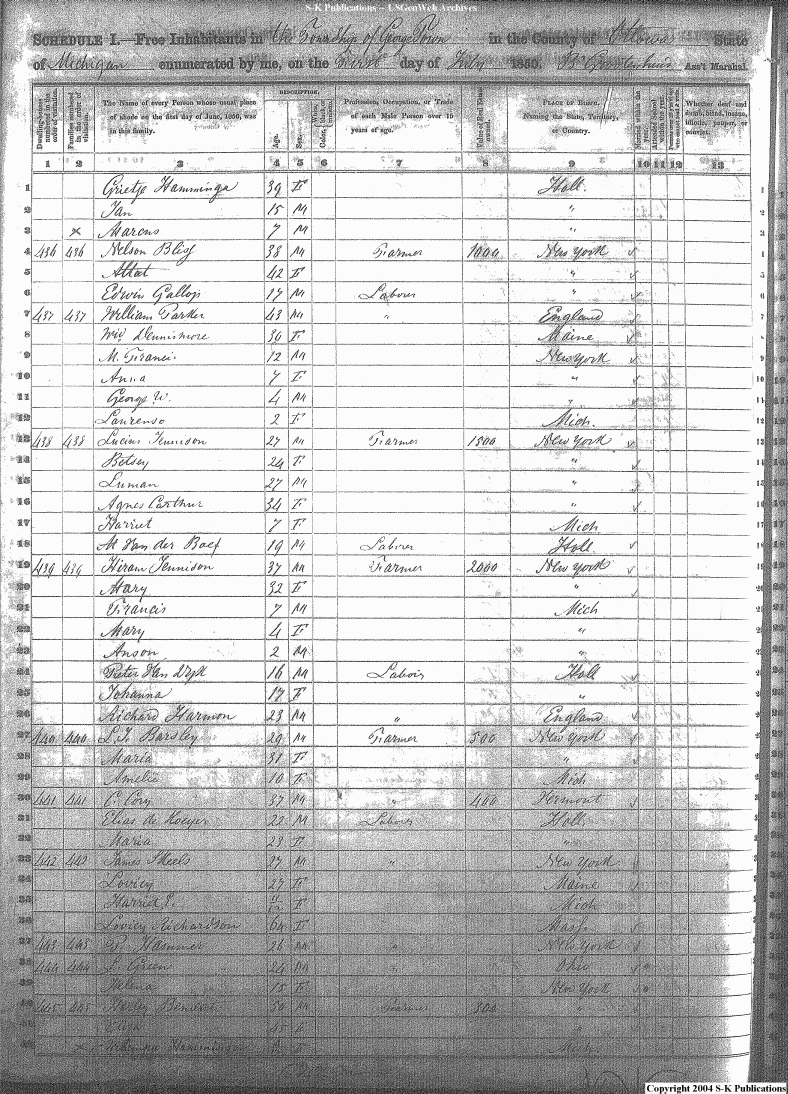 S-K Publications – USGenWeb Archives
SCHEDULE I.—Free Inhabitants in the Township of George Town in the County of Ottowa State
of Michigan enumerated by me, on the First day of July 1850. Ass't Marshal.
DESCRIPTION.
Dwelling-houses numbered in the order of visitation. Families numbered in the order of visitation. The Name of every Person whose usual place of abode on the first day of June, 1850, was in this family. Age. Sex. Color, White, black, or mulatto. Profession, Occupation, or Trade of each Male Person over 15 years of age. Value of Real Estate owned. PLACE OF BIRTH. Naming the State, Territory, or Country. Married within the year. Attended School within the year. Whether deaf and dumb, blind, insane, idiotic, pauper, or convict.
1 2 3 4 5 6 7 8 9 10 11 12 13
1 Grietje Hamminga 39 F Holl. 1
2 Jan 15 M " 2
3 x Marcus 7 M " 3
4 436 436 Nelson Bliss 38 M Farmer 1000 New York ✓ 4
5 42 F " ✓ 5
6 Edwin Gallop 17 M Labour " ✓ 6
7 437 437 William Parker 43 M " England ✓ 7
8 Wid Dennismore 39 F Maine ✓ 8
9 M. Francis 12 M New York ✓ 9
10 Anna 7 F " ✓ 10
11 George W. 4 M " ✓ 11
12 Laurenso 2 F Mich. 12
13 438 438 Lucius Jennison 27 M Farmer 1500 New York ✓
14 Betsey 24 F " ✓
15 Luman 27 M " ✓
16 Agnes Carthur 34 F " ✓
17 Harriet 7 F Mich
18 M Van der Boef 19 M Laborer Holl ✓
19 439 439 Hiram Jennison 37 M Farmer 2000 New York ✓
20 Mary 32 F " ✓
21 Francis 7 M Mich
22 Mary 4 F "
23 Anson 2 M "
24 Pieter Van Dyk 16 M Labour Holl ✓
25 Johanna 17 F "
26 Richard Harmon 23 M " England ✓
27 440 440 L.J. Barsley 29 M Farmer 500 New York ✓
28 Maria 31 F " ✓
29 Amelia 10 F Mich
30 441 441 C. Cory 37 M " 400 Vermont ✓
31 Elias de Koeyer 22 M Labour Holl.
32 Maria 23 F "
33 442 442 James Skeels 27 M " New York ✓
34 Lovicy 27 F Maine ✓
35 Harriet E. F Mich
36 Lovicy Richardson 64 F Mass. ✓
37 443 443 P. Hammer 26 M " New York ✓
38 444 444 L. Green 24 M " Ohio ✓
39 Helena 15 F New York ✓
40 445 445 50 M Farmer 300 " ✓
41 Eliza 45 F "
42 x Hamminga F Mich.
S-K
Copyright 2004 S-K Publications